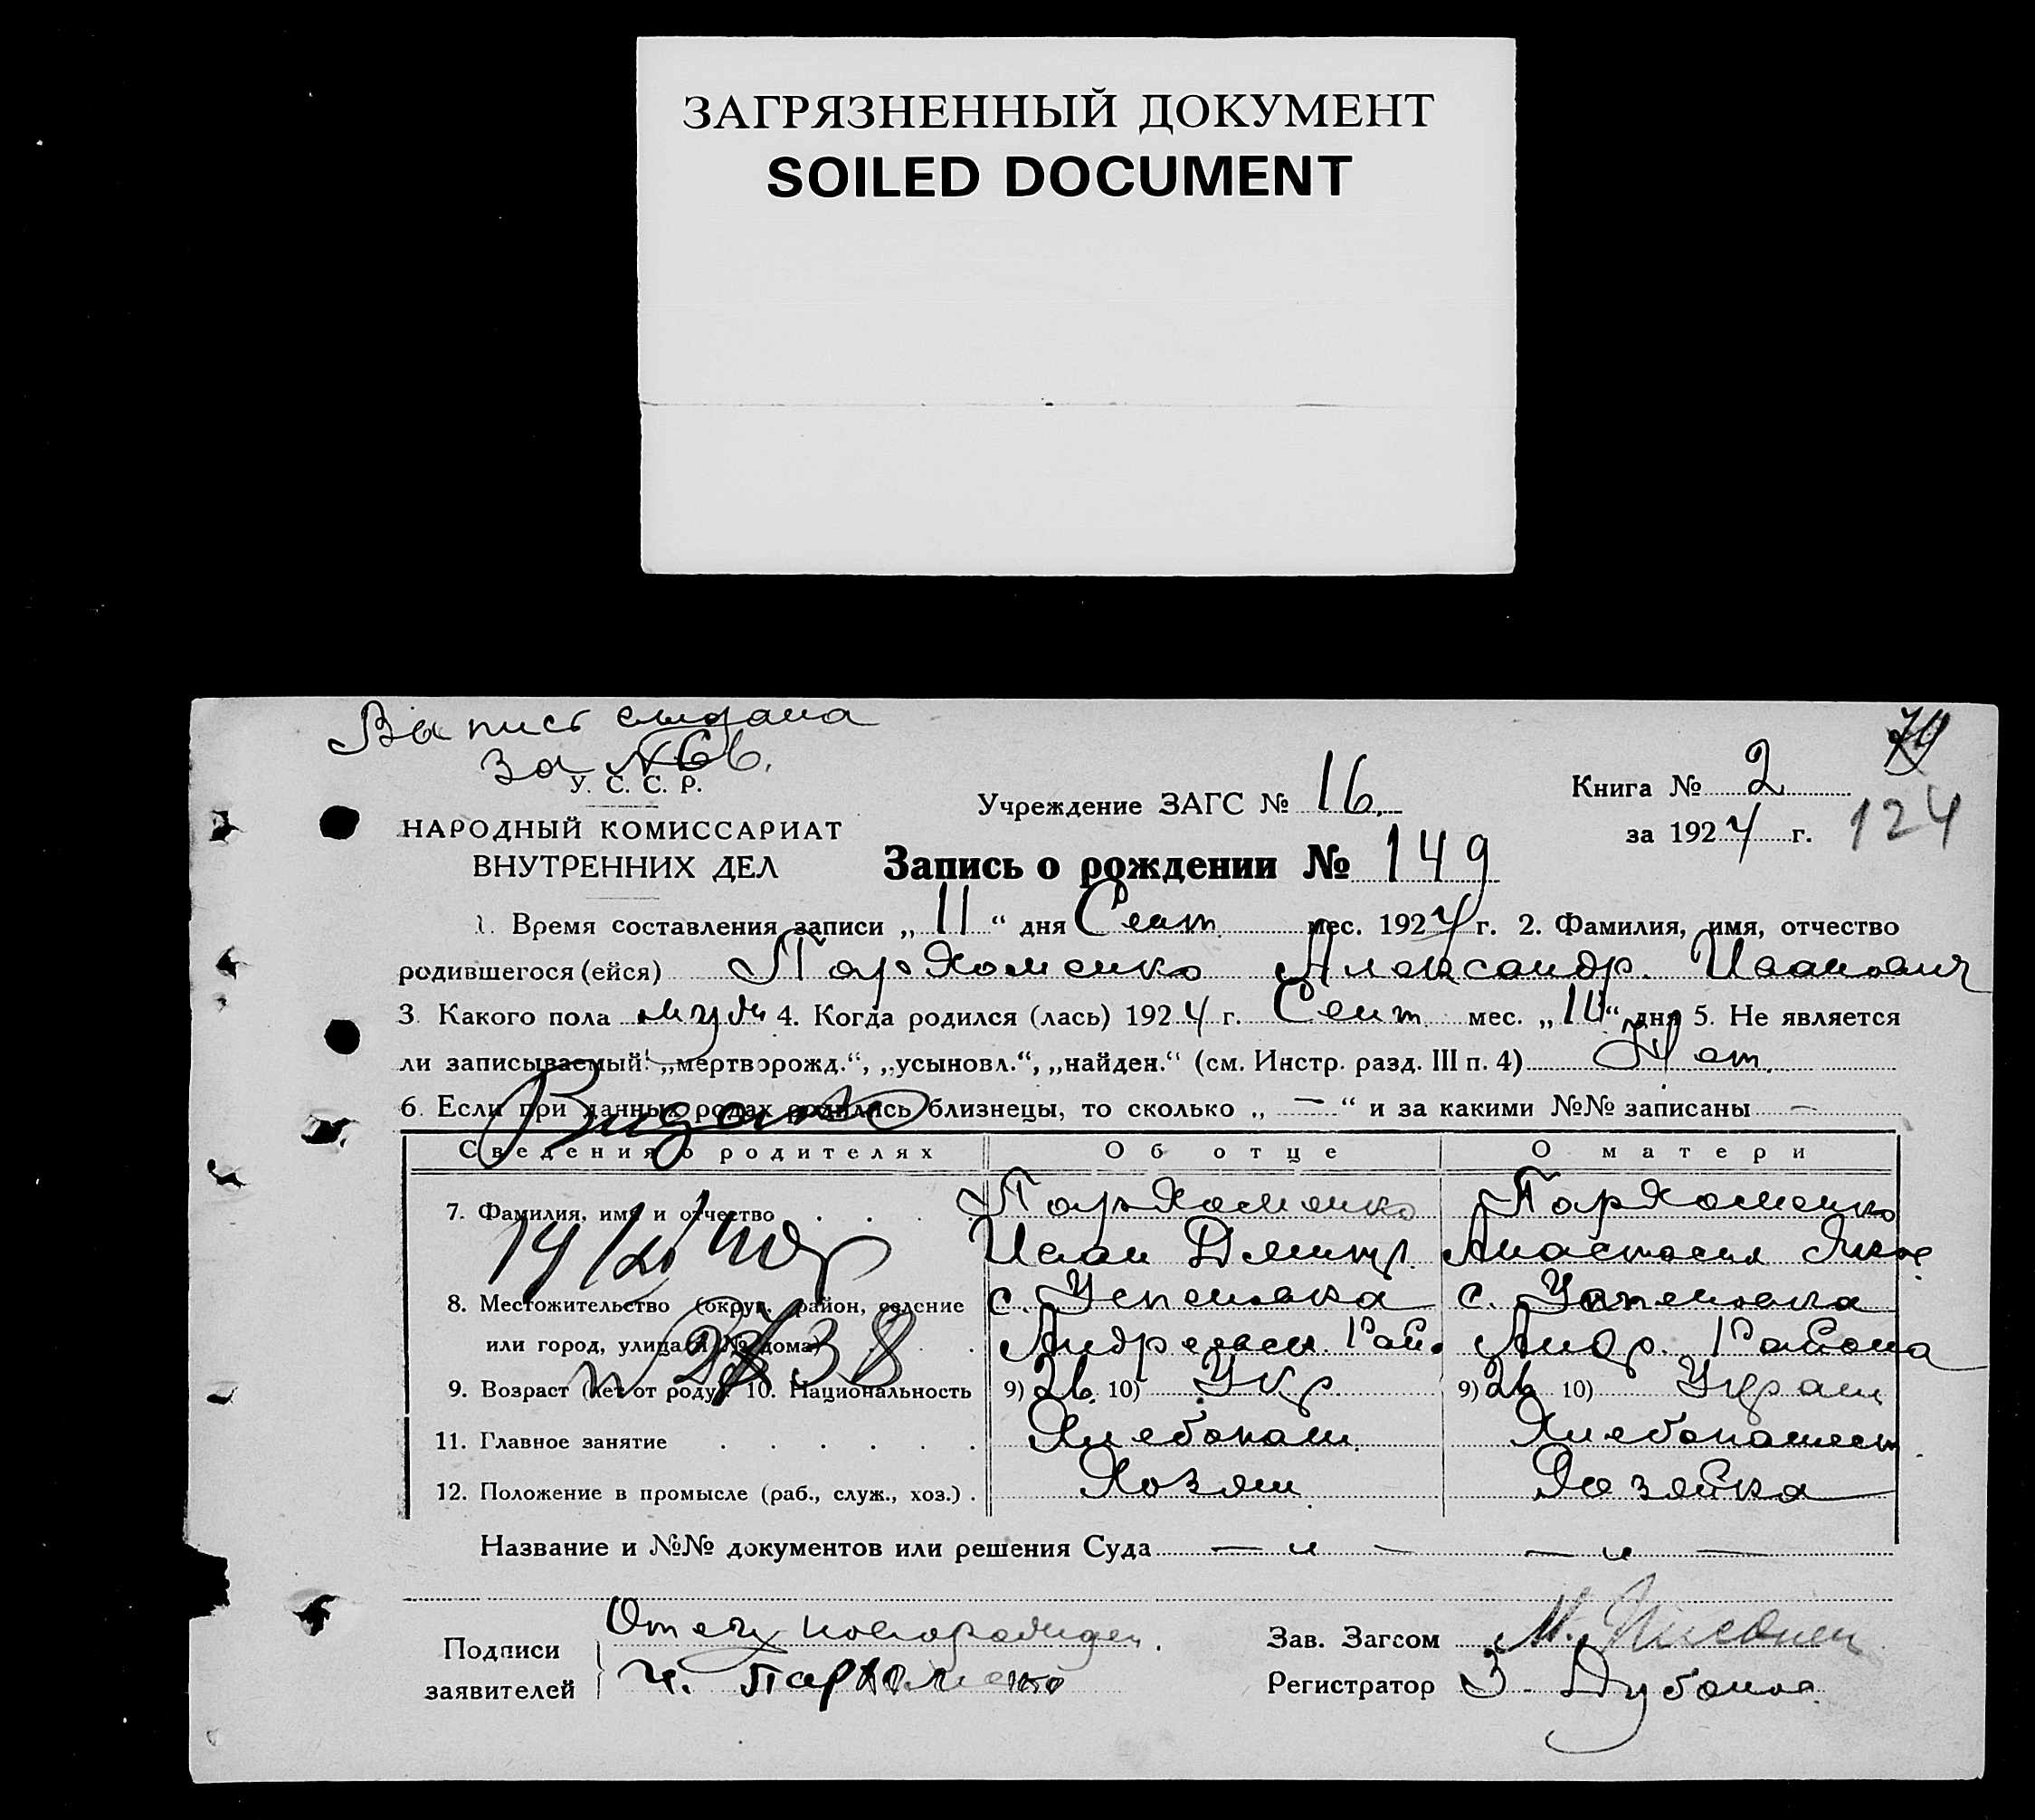 ЗАГРЯЗНЕННЫЙ ДОКУМЕНТ
SOILED DOCUMENT
за №66.
У. С. С. Р.
НАРОДНЫЙ КОМИССАРИАТ
ВНУТРЕННИХ ДЕЛ
Учреждение ЗАГС № 16
Книга № 2
за 1924 г. 124
Запись о рождении № 149
1. Время составления записи „11“ дня Сент. мес. 1924 г. 2. Фамилия, имя, отчество
родившегося (ейся) Пархоменко Александр Иванович
3. Какого пола муж 4. Когда родился (лась) 1924 г. Сент. мес. „ “ дня 5. Не является
ли записываемый: „мертворожд.“, „усыновл.“, „найден.“ (см. Инстр. разд. III п. 4) Нет
6. Если при данных родах родились близнецы, то сколько „ — “ и за какими №№ записаны —
Видано
Сведения о родителях Об отце О матери
7. Фамилия, имя и отчество Пархоменко Пархоменко
Иван Дмитр. Анастасия Яков
8. Местожительство (округ, район, селение с. Успеновка с. Успеновка
или город, улица и № дома) Андреевск. Рай. Андр. Района
9. Возраст (лет от роду) 10. Национальность 9) 26. 10) Укр. 9) 26 10) Украин
11. Главное занятие Хлебопаш. Хлебопашест.
12. Положение в промысле (раб., служ., хоз.) Хозяин Хозяйка
Название и №№ документов или решения Суда — „ — — „ —
Подписи
заявителей
Отец новорожден.
И. Пархоменко
Зав. Загсом М.
Регистратор З.